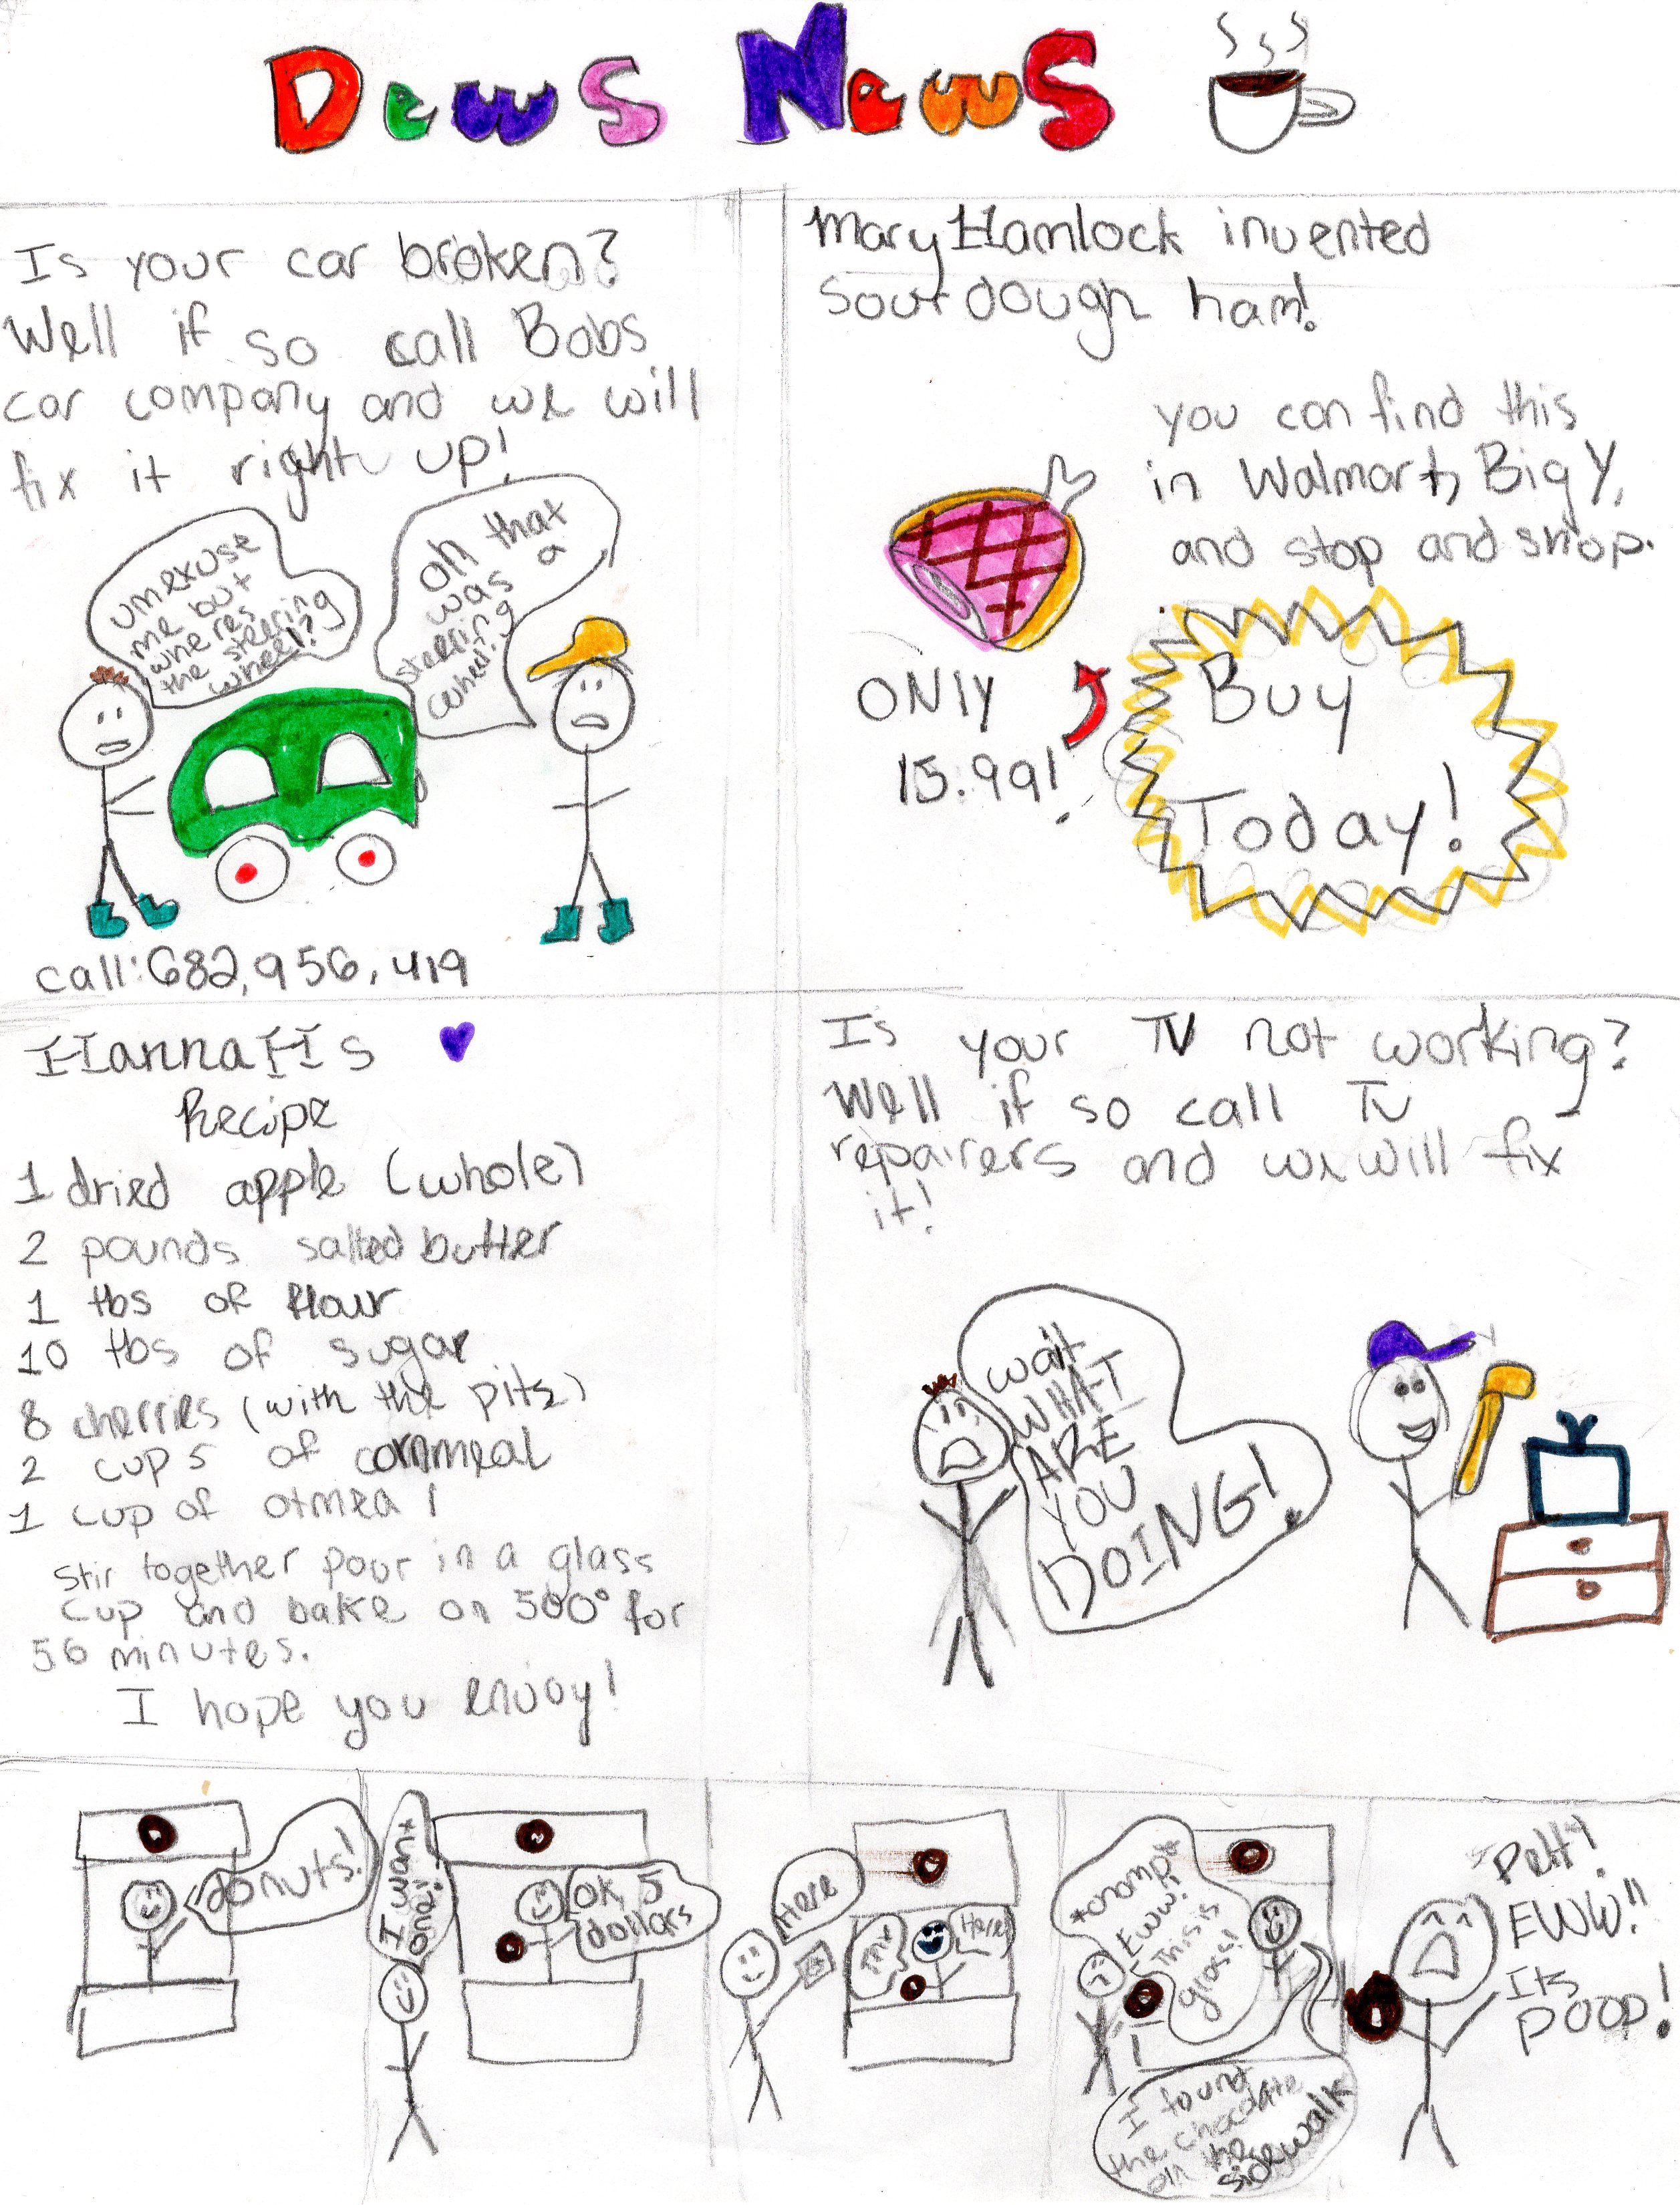 Dews News
Is your car broken?
Well if so call Bobs
car company and we will
fix it right up!
um exuse
me but
wheres
the steering
wheel?
oh that
was a
steering
wheel?
call: 682,956,419
Mary Hamlock invented
Sourdough ham!
you can find this
in Walmart, Big Y,
and stop and shop.
ONLY
15.99!
Buy
Today!
HannaHs
Recipe
1 dried apple (whole)
2 pounds salted butter
1 tbs of flour
10 tbs of sugar
8 cherries (with the pits)
2 cups of cornmeal
1 cup of otmeal
Stir together pour in a glass
cup and bake on 500° for
56 minutes.
I hope you enjoy!
Is your TV not working?
Well if so call Tv
repairers and we will fix
it!
wait
WHAT
ARE
YOU
DOING!
donuts!
I want
one!
OK 5
dollars
Here
Here
*chomp*
Eww!
This is
gloss!
I found
the chocolate
on the
sidewalk
EWW!!
Its
POOP!